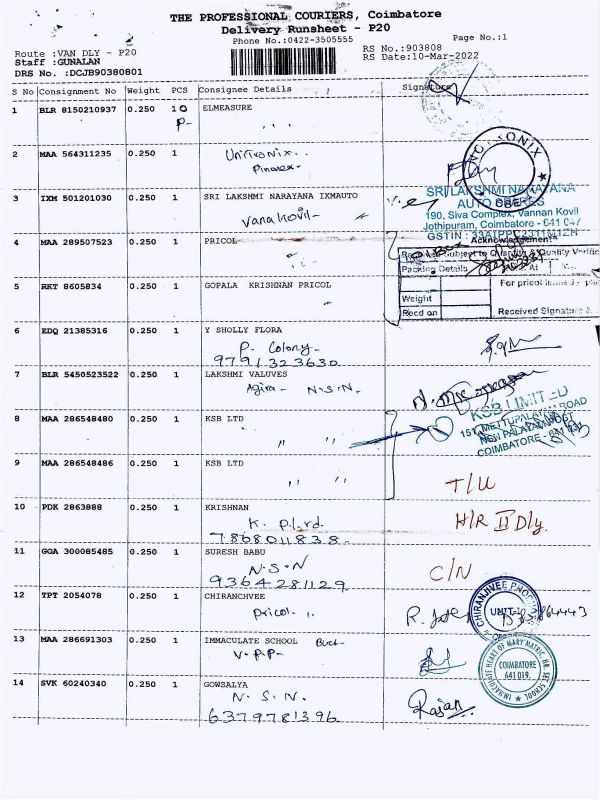 THE PROFESSIONAL COURIERS, Coimbatore
Delivery Runsheet - P20
Phone No.:0422-3505555
Page No.:1
Route :VAN DLY - P20
RS No.:903808
Staff :GUNALAN
RS Date:10-Mar-2022
DRS No. :DCJB90380801
S No Consignment No Weight PCS Consignee Details Signature
1 BLR 8150210937 0.250 10 ELMEASURE
P-
2 MAA 564311235 0.250 1 Unitronix..
Pinarex-
3 IXM 501201030 0.250 1 SRI LAKSHMI NARAYANA IXMAUTO
Vanakovil-
SRI LAKSHMI NARAYANA
AUTO
190, Siva Complex, Vannan Kovil
Jothipuram, Coimbatore - 641 047
4 MAA 289507523 0.250 1 PRICOL
Acknowledgement
Packing Details
Weight
Recd on
For pricol
Received Signature
5 RKT 8605834 0.250 1 GOPALA KRISHNAN PRICOL
6 EDQ 21385316 0.250 1 Y SHOLLY FLORA
P. Colony-
9791323630
7 BLR 5450523522 0.250 1 LAKSHMI VALUVES
Agira- N.S.N.
8 MAA 286548480 0.250 1 KSB LTD
" "
KSB LIMITED
151, METTUPALAYAM ROAD
NSN PALAYAM POST
COIMBATORE - 641 031
9 MAA 286548486 0.250 1 KSB LTD
" "
T/U
10 PDK 2863888 0.250 1 KRISHNAN
K. P.l.rd.
7868011838-
H/R II Dly.
11 GOA 300085485 0.250 1 SURESH BABU
N.S.N
9364281129
C/N
12 TPT 2054078 0.250 1 CHIRANCHVEE
Pricol.
CHIRANJIVEE
UNIT-
13 MAA 286691303 0.250 1 IMMACULATE SCHOOL
V.P.P-
IMMACULATE HEART OF MARY MATRIC. HR. SEC. SCHOOL
COIMBATORE
641 019.
14 SVK 60240340 0.250 1 GOWSALYA
N. S. N.
6379781396
Rajan